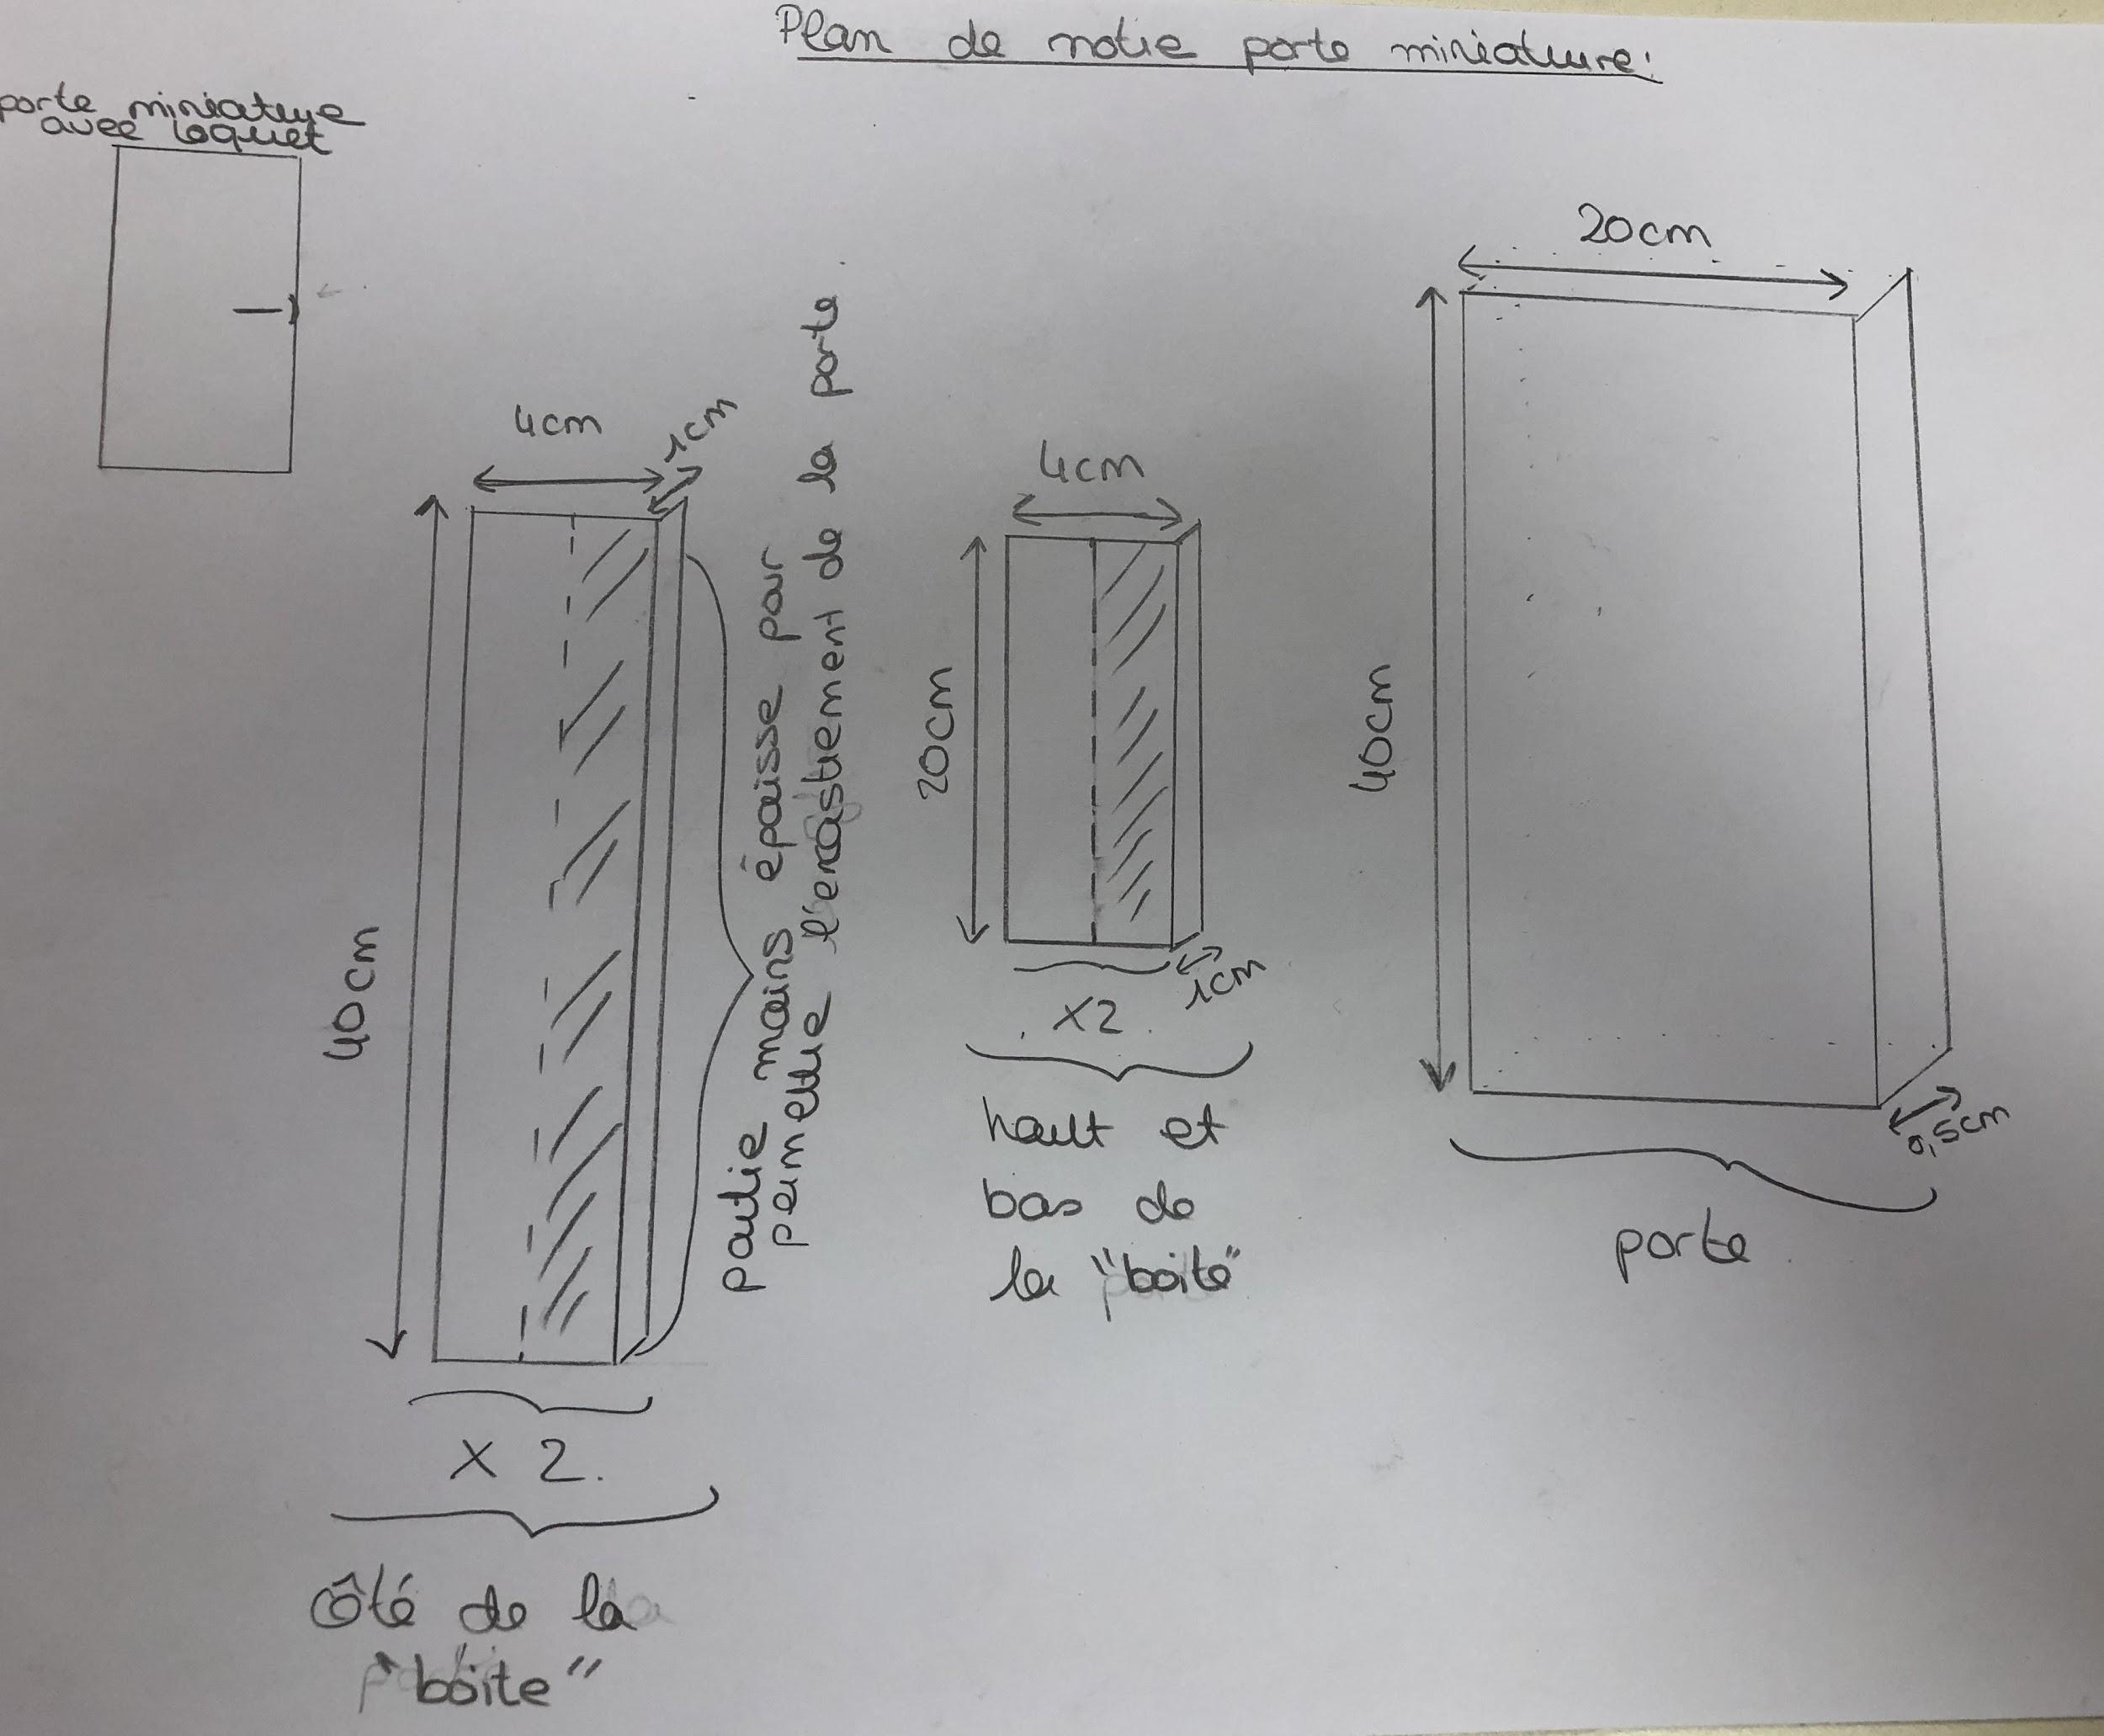 Plan de notre porte miniature:
porte miniature
avec loquet
20cm
40cm
0,5cm
porte
4cm
1cm
40cm
partie moins épaisse pour
permettre l'encastrement de la porte
x 2.
côté de la
"boite"
4cm
20cm
1cm
x2.
haut et
bas de
la "boite"